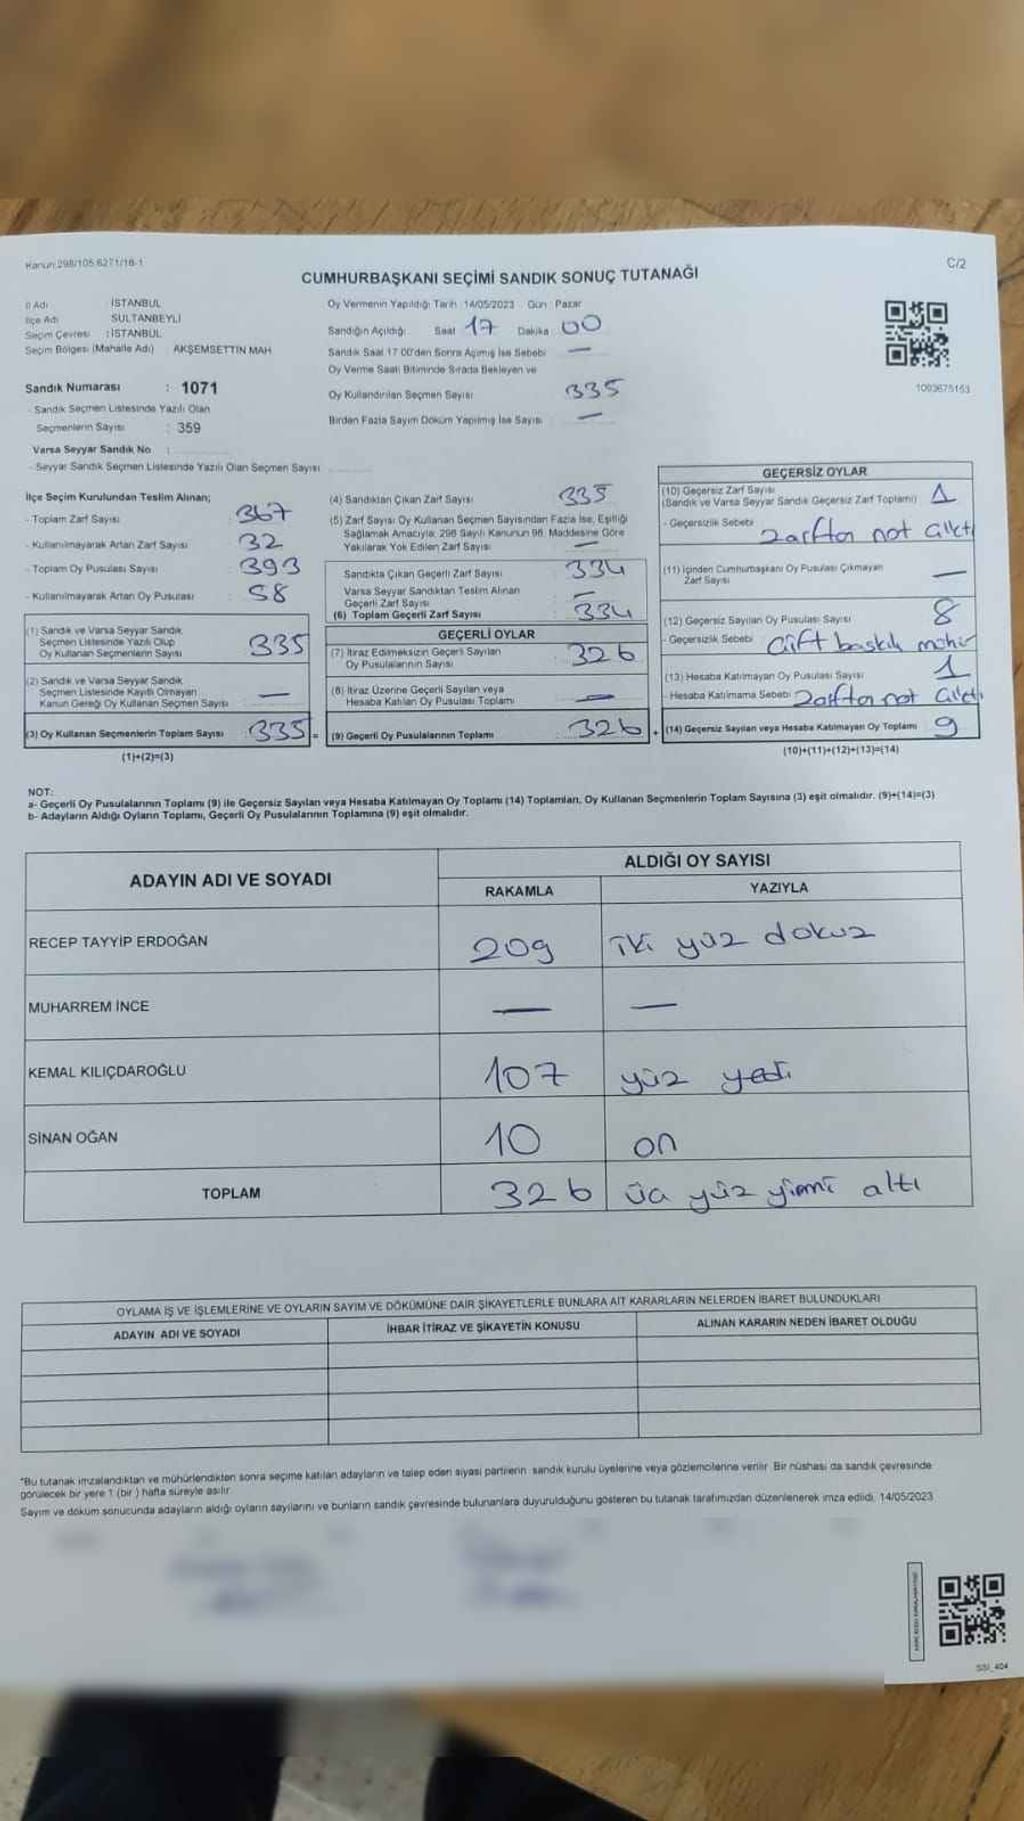 Kanun:298/105,6271/18-1
C/2
CUMHURBAŞKANI SEÇİMİ SANDIK SONUÇ TUTANAĞI
İl Adı : İSTANBUL
İlçe Adı : SULTANBEYLİ
Seçim Çevresi : İSTANBUL
Seçim Bölgesi (Mahalle Adı) AKŞEMSETTİN MAH
Sandık Numarası : 1071
- Sandık Seçmen Listesinde Yazılı Olan
Seçmenlerin Sayısı : 359
Varsa Seyyar Sandık No :
- Seyyar Sandık Seçmen Listesinde Yazılı Olan Seçmen Sayısı
Oy Vermenin Yapıldığı Tarih 14/05/2023 Gün : Pazar
Sandığın Açıldığı: Saat 17 Dakika 00
Sandık Saat 17 00'den Sonra Açılmış İse Sebebi —
Oy Verme Saati Bitiminde Sırada Bekleyen ve
Oy Kullandırılan Seçmen Sayısı 335
Birden Fazla Sayım Döküm Yapılmış İse Sayısı —
1003675153
İlçe Seçim Kurulundan Teslim Alınan;
- Toplam Zarf Sayısı 367
- Kullanılmayarak Artan Zarf Sayısı 32
- Toplam Oy Pusulası Sayısı 393
- Kullanılmayarak Artan Oy Pusulası 58
(1) Sandık ve Varsa Seyyar Sandık
Seçmen Listesinde Yazılı Olup
Oy Kullanan Seçmenlerin Sayısı 335
(2) Sandık ve Varsa Seyyar Sandık
Seçmen Listesinde Kayıtlı Olmayan
Kanun Gereği Oy Kullanan Seçmen Sayısı —
(3) Oy Kullanan Seçmenlerin Toplam Sayısı 335 =
(1)+(2)=(3)
(4) Sandıktan Çıkan Zarf Sayısı 335
(5) Zarf Sayısı Oy Kullanan Seçmen Sayısından Fazla İse, Eşitliği
Sağlamak Amacıyla, 298 Sayılı Kanunun 98. Maddesine Göre
Yakılarak Yok Edilen Zarf Sayısı —
Sandıkta Çıkan Geçerli Zarf Sayısı 334
Varsa Seyyar Sandıktan Teslim Alınan
Geçerli Zarf Sayısı : —
(6) Toplam Geçerli Zarf Sayısı : 334
GEÇERLİ OYLAR
(7) İtiraz Edilmeksizin Geçerli Sayılan
Oy Pusulalarının Sayısı 326
(8) İtiraz Üzerine Geçerli Sayılan veya
Hesaba Katılan Oy Pusulası Toplamı —
(9) Geçerli Oy Pusulalarının Toplamı 326 +
GEÇERSİZ OYLAR
(10) Geçersiz Zarf Sayısı
(Sandık ve Varsa Seyyar Sandık Geçersiz Zarf Toplamı) 1
- Geçersizlik Sebebi Zarftan not çıktı
(11) İçinden Cumhurbaşkanı Oy Pusulası Çıkmayan
Zarf Sayısı —
(12) Geçersiz Sayılan Oy Pusulası Sayısı 8
- Geçersizlik Sebebi Çift baskılı mühür
(13) Hesaba Katılmayan Oy Pusulası Sayısı 1
Hesaba Katılmama Sebebi Zarftan not çıktı
(14) Geçersiz Sayılan veya Hesaba Katılmayan Oy Toplamı 9
(10)+(11)+(12)+(13)=(14)
NOT:
a- Geçerli Oy Pusulalarının Toplamı (9) ile Geçersiz Sayılan veya Hesaba Katılmayan Oy Toplamı (14) Toplamları, Oy Kullanan Seçmenlerin Toplam Sayısına (3) eşit olmalıdır. (9)+(14)=(3)
b- Adayların Aldığı Oyların Toplamı, Geçerli Oy Pusulalarının Toplamına (9) eşit olmalıdır.
ADAYIN ADI VE SOYADI ALDIĞI OY SAYISI
RAKAMLA YAZIYLA
RECEP TAYYİP ERDOĞAN 209 iki yüz dokuz
MUHARREM İNCE — —
KEMAL KILIÇDAROĞLU 107 yüz yedi
SİNAN OĞAN 10 on
TOPLAM 326 üç yüz yirmi altı
OYLAMA İŞ VE İŞLEMLERİNE VE OYLARIN SAYIM VE DÖKÜMÜNE DAİR ŞİKAYETLERLE BUNLARA AİT KARARLARIN NELERDEN İBARET BULUNDUKLARI
ADAYIN ADI VE SOYADI İHBAR İTİRAZ VE ŞİKAYETİN KONUSU ALINAN KARARIN NEDEN İBARET OLDUĞU
*Bu tutanak imzalandıktan ve mühürlendikten sonra seçime katılan adayların ve talep eden siyasi partilerin sandık kurulu üyelerine veya gözlemcilerine verilir. Bir nüshası da sandık çevresinde
görülecek bir yere 1 (bir ) hafta süreyle asılır.
Sayım ve döküm sonucunda adayların aldığı oyların sayılarını ve bunların sandık çevresinde bulunanlara duyurulduğunu gösteren bu tutanak tarafımızdan düzenlenerek imza edildi. 14/05/2023
SSI_404